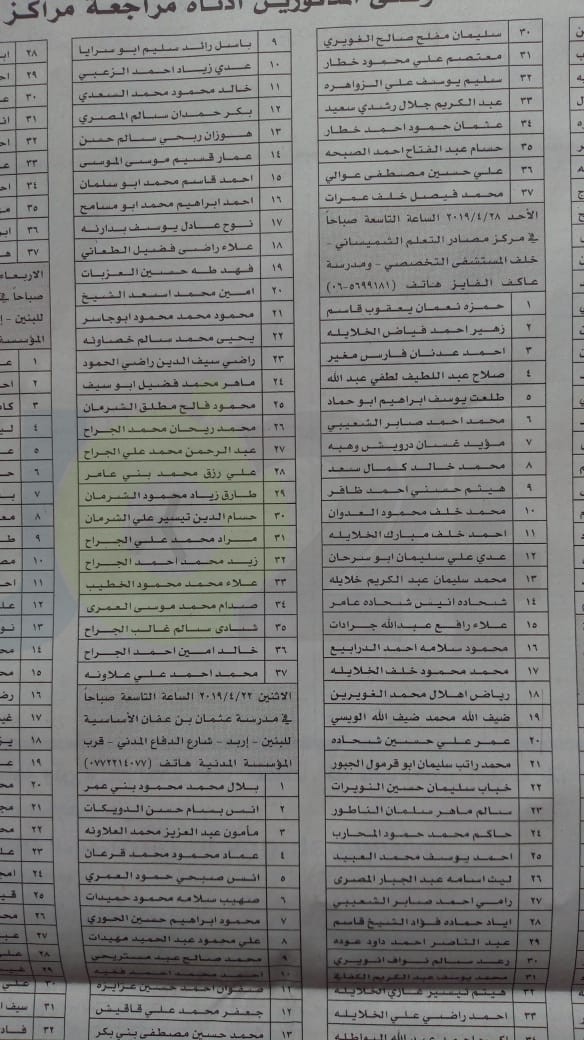 المذكورين ادناه مراجعة مراكز
٣٠ سليمان مفلح صالح الغويري
٣١ معتصم علي محمود خطار
٣٢ سليم يوسف علي الزواهره
٣٣ عبد الكريم جلال رشدي سعيد
٣٤ عثمان حمود احمد خطار
٣٥ حسام عبد الفتاح احمد الصبحه
٣٦ علي حسين مصطفى عوالي
٣٧ محمد فيصل خلف عمرات
الأحد ٢٠١٩/٤/٢٨ الساعة التاسعة صباحاً
في مركز مصادر التعلم الشميساني -
خلف المستشفى التخصصي - ومدرسة
عاكف الفايز هاتف (٠٦-٥٦٩٩١٨١)
١ حمزه نعمان يعقوب قاسم
٢ زهير احمد فياض الخلايله
٣ احمد عدنان فارس مغير
٤ صلاح عبد اللطيف لطفي عبد الله
٥ طلعت يوسف ابراهيم ابو حماد
٦ محمد احمد صابر الشعيبي
٧ مؤيد غسان درويش وهبه
٨ محمد خالد كمال سعد
٩ هيثم حسني احمد ظافر
١٠ محمد خلف محمود العدوان
١١ احمد خلف مبارك الخلايله
١٢ عدي علي سليمان ابو سرحان
١٣ محمد سليمان عبد الكريم خلايله
١٤ شحاده انيس شحاده عامر
١٥ علاء رافع عبدالله جرادات
١٦ محمود سلامه احمد الدرابيع
١٧ محمد محمود خلف الخلايله
١٨ رياض اهلال محمد الغويرين
١٩ ضيف الله محمد ضيف الله الويسي
٢٠ عمر علي حسين شحاده
٢١ محمد راتب سليمان ابو قرمول الجبور
٢٢ خباب سليمان حسين النويرات
٢٣ سالم ماهر سلمان الناطور
٢٤ حاكم محمد حمود المحارب
٢٥ احمد يوسف محمد العبيد
٢٦ ليث اسامه عبد الجبار المصرى
٢٧ رامي احمد صابر الشعيبي
٢٨ اياد حماده فؤاد الشيخ قاسم
٢٩ عبد الناصر احمد داود عوده
٣٠ رعد سالم نواف انويري
٣١ محمد يوسف عبد الكريم الكفافي
٣٢ هيثم تيسير غازي الخلايله
٣٣ احمد راضي علي الخلايله
٩ باسل رائد سليم ابو سرايا
١٠ عدي زياد احمد الزعبي
١١ خالد محمود محمد السعدي
١٢ بكر حمدان سالم المصري
١٣ هوزان ربحي سالم حسن
١٤ عمار قسيم موسى الموسى
١٥ احمد قاسم محمد ابو سلمان
١٦ احمد ابراهيم محمد ابو مسامح
١٧ نوح عادل يوسف بدارنه
١٨ علاء راضى فضيل الطعانى
١٩ فهد طه حسين العزبات
٢٠ امين محمد اسعد الشيخ
٢١ محمود محمد محمود ابوجاسر
٢٢ يحيى محمد سالم خصاونه
٢٣ راضي سيف الدين راضي الحمود
٢٤ ماهر محمد فضيل ابو سيف
٢٥ محمود فالح مطلق الشرمان
٢٦ محمد ريحان محمد الجراح
٢٧ عبد الرحمن محمد علي الجراح
٢٨ علي رزق محمد بني عامر
٢٩ طارق زياد محمود الشرمان
٣٠ حسام الدين تيسير علي الشرمان
٣١ مراد محمد علي الجراح
٣٢ زيد محمد احمد الجراح
٣٣ علاء محمد محمود الخطيب
٣٤ صدام محمد موسى العمرى
٣٥ شادى سالم غالب الجراح
٣٦ خالد امين احمد الجراح
٣٧ محمد احمد علي علاونه
الاثنين ٢٠١٩/٤/٢٢ الساعة التاسعة صباحاً
في مدرسة عثمان بن عفان الأساسية
للبنين - إربد - شارع الدفاع المدني - قرب
المؤسسة المدنية هاتف (٠٧٧٢٢١٤٠٧٧)
١ بلال محمد محمود بني عمر
٢ انس بسام حسن الدويكات
٣ مأمون عبد العزيز محمد العلاونه
٤ عماد محمود محمد قرعان
٥ انس صبحي حمود العمري
٦ صهيب سلامه محمود حميدات
٧ محمود ابراهيم حسين الحوري
٨ علي محمود عبد الحميد مهيدات
٩ محمد صالح عبد مستريحي
١٠ احمد محمد احمد فقيه
١١ صفوان احمد حسين عرايزه
١٢ جعفر محمد علي قاقيش
١٣ محمد حسين مصطفى بني بكر
٢٨
٢٩
٣٠
٣١
٣٢
٣٣
٣٤
٣٥
٣٦
٣٧
الاربعاء
صباحاً في
للبنين -
المؤسسة
١
٢
٣
٤
٥
٦
٧
٨
٩
١٠
١١
١٢
١٣
١٤
١٥
١٦
١٧
١٨
١٩
٢٠
٢١
٢٢
٢٣
٢٤
٢٥
٢٦
٢٧
٢٨
٢٩
٣٠
٣١
٣٢